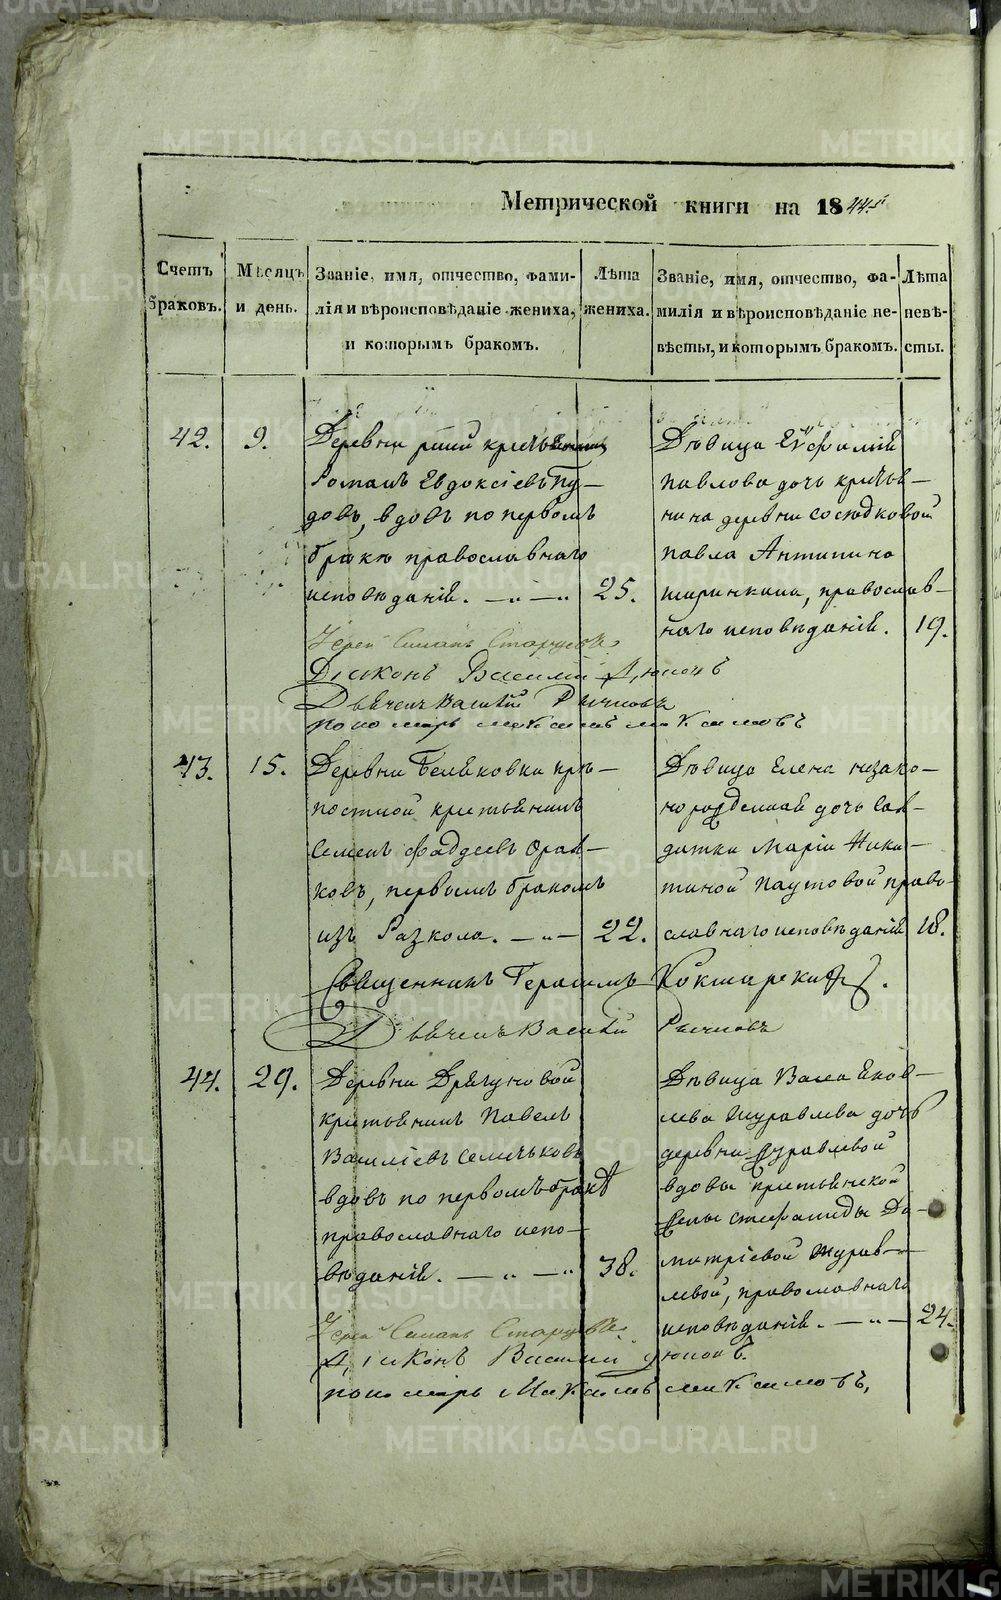 Метрической книги на 1845
Счетъ браковъ.
Мѣсяцъ и день.
Званіе, имя, отчество, фами-
лія и вѣроисповѣданіе жениха,
и которымъ бракомъ.
Лѣта
жениха.
Званіе, имя, отчество, фа-
милія и вѣроисповѣданіе не-
вѣсты, и которымъ бракомъ.
Лѣта
невѣ-
сты.
42.
9.
Деревни
Романъ Евдоксіевъ Пу-
довъ, вдовъ по первомъ
бракѣ православнаго
исповѣданія. — „ — „ 25.
Дѣвица Евфимія
Павлова дочь крестья-
нина деревни Соседковой
Павла Антипина
православ-
наго исповѣданія. 19.
Іерей Симонъ Старцевъ
Діаконъ Василій
Дьячекъ Василій
Пономарь Максимъ Максимовъ
43.
15.
Деревни Беляковки крѣ-
постной крестьянинъ
Семенъ Фаддеевъ Орля-
ковъ, первымъ бракомъ
изъ Раскола. — „ — 22.
Дѣвица Елена незако-
норожденная дочь Сол-
датки Маріи Ники-
тиной Паутовой право-
славнаго исповѣданія 18.
Священникъ Герасимъ Кокшарскій.
Дьячекъ Василій
44.
29.
Деревни
крестьянинъ Павелъ
Василіевъ
вдовъ по первомъ бракѣ
православнаго испо-
вѣданія. — „ — „ 38.
Дѣвица Васса Яков-
лева Журавлева дочь
деревни Журавлевой
вдовы крестьянской
жены Стефаниды Ди-
митріевой Журав-
левой, православнаго
исповѣданія. — „ — 24.
Іерей Симонъ Старцевъ
Діаконъ Василій
Пономарь Максимъ Максимовъ,
METRIKI.GASO-URAL.RU